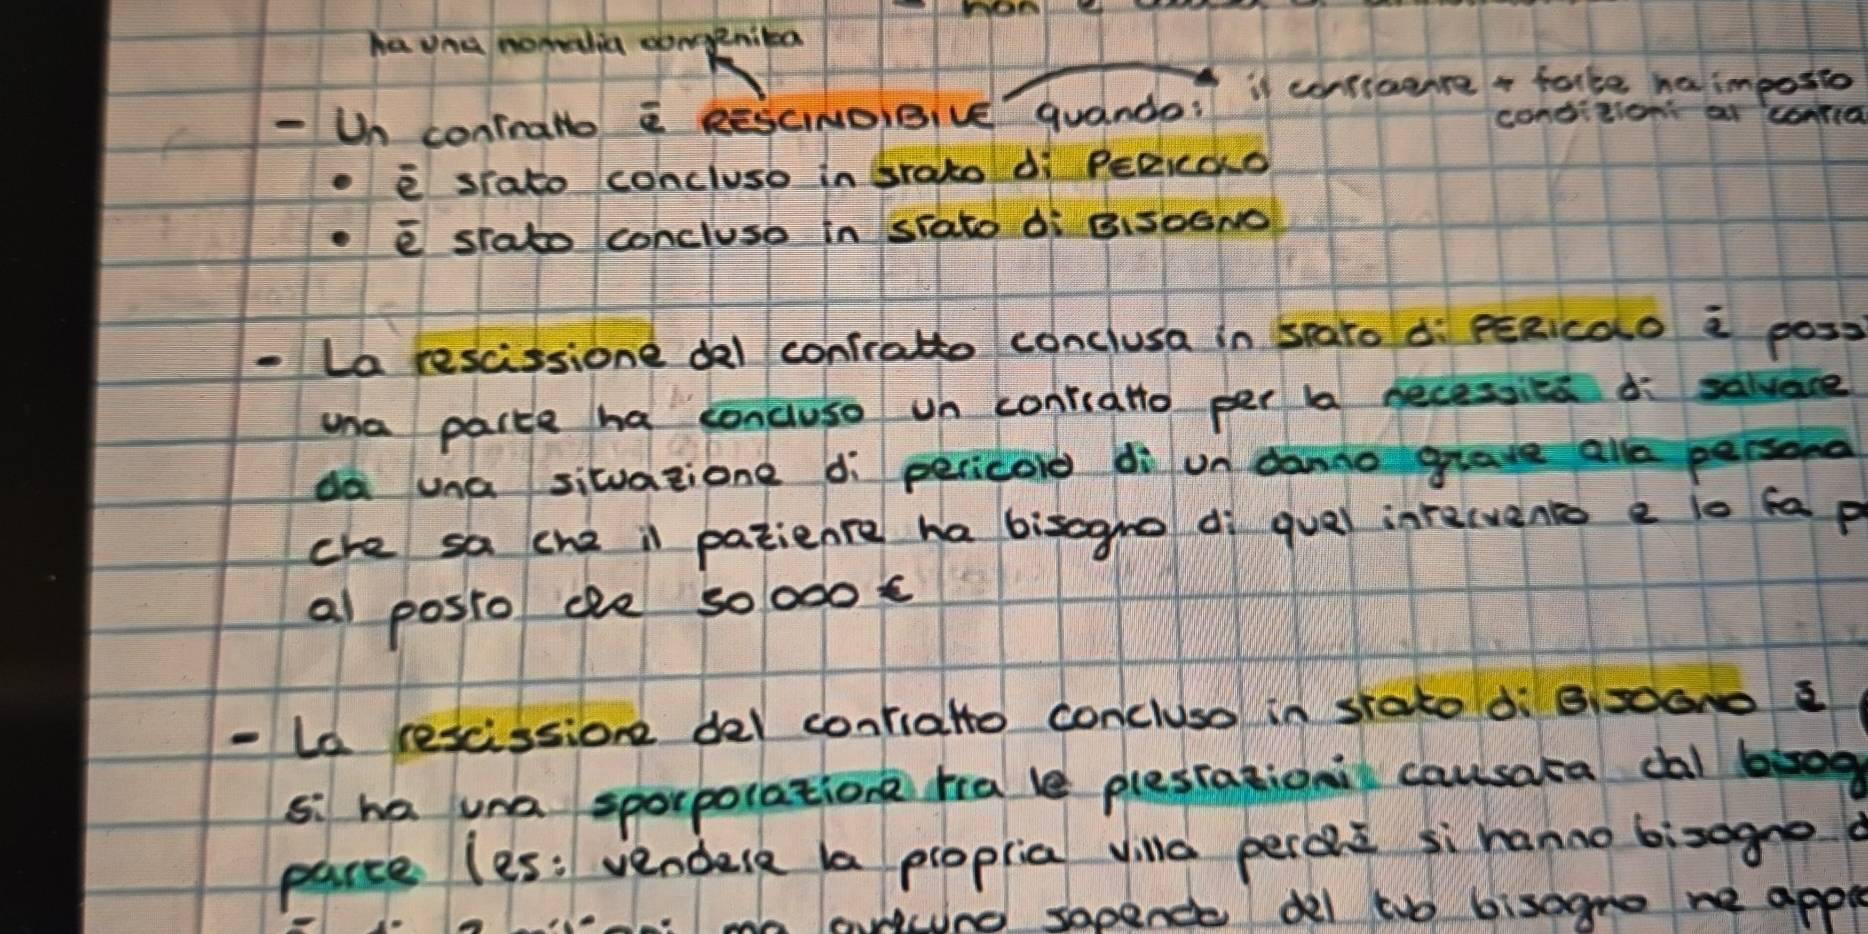 non
ha una nomalia congenita
il contraente + forte ha imposto
condizioni al contra
- Un contratto è RESCINDIBILE quando:
• è stato concluso in stato di PERICOLO
• è stato concluso in stato di BISOGNO
- La rescissione del contratto conclusa in stato di PERICOLO è poss
una parte ha concluso un contratto per la necessità di salvare
da una situazione di pericolo di un danno grave alla persona
che sa che il paziente ha bisogno di quel intervento e lo fa p
al posto che 50 000 €
- La rescissione del contratto concluso in stato di BISOGNO è
si ha una sporporazione tra le prestazioni causata dal bisog
parte (es: vendere la propria villa perchè si hanno bisogno d
ma qualcuno sapendo del tuo bisogno ne appro